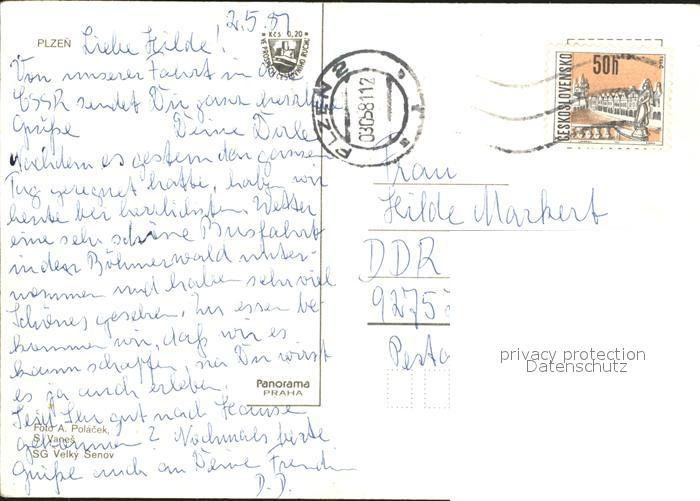 2.5.81
PLZEŇ
Liebe Hilde!
Kčs 0,20
Von unserer Fahrt in die
ČSSR sendet Dir ganz herzliche
Grüße Deine
Nachdem es gestern den ganzen
Tag geregnet hatte, haben wir
heute bei herrlichstem Wetter
eine sehr schöne Busfahrt
in den Böhmerwald unter-
nommen und haben sehr viel
Schönes gesehen. Zu essen be-
kommen wir, daß wir es
kaum schaffen, na Du wirst
es ja auch erleben.
Seid Ihr gut nach Hause
gekommen? Nochmals beste
Grüße auch an Deine Freundin
D. D.
Panorama
PRAHA
Foto A. Poláček,
S. Vaneš
SG Velký Šenov
PLZEN 2
03058112
ČESKOSLOVENSKO
50h
Frau
Hilde Markert
DDR
9275
Pesta
privacy protection
Datenschutz